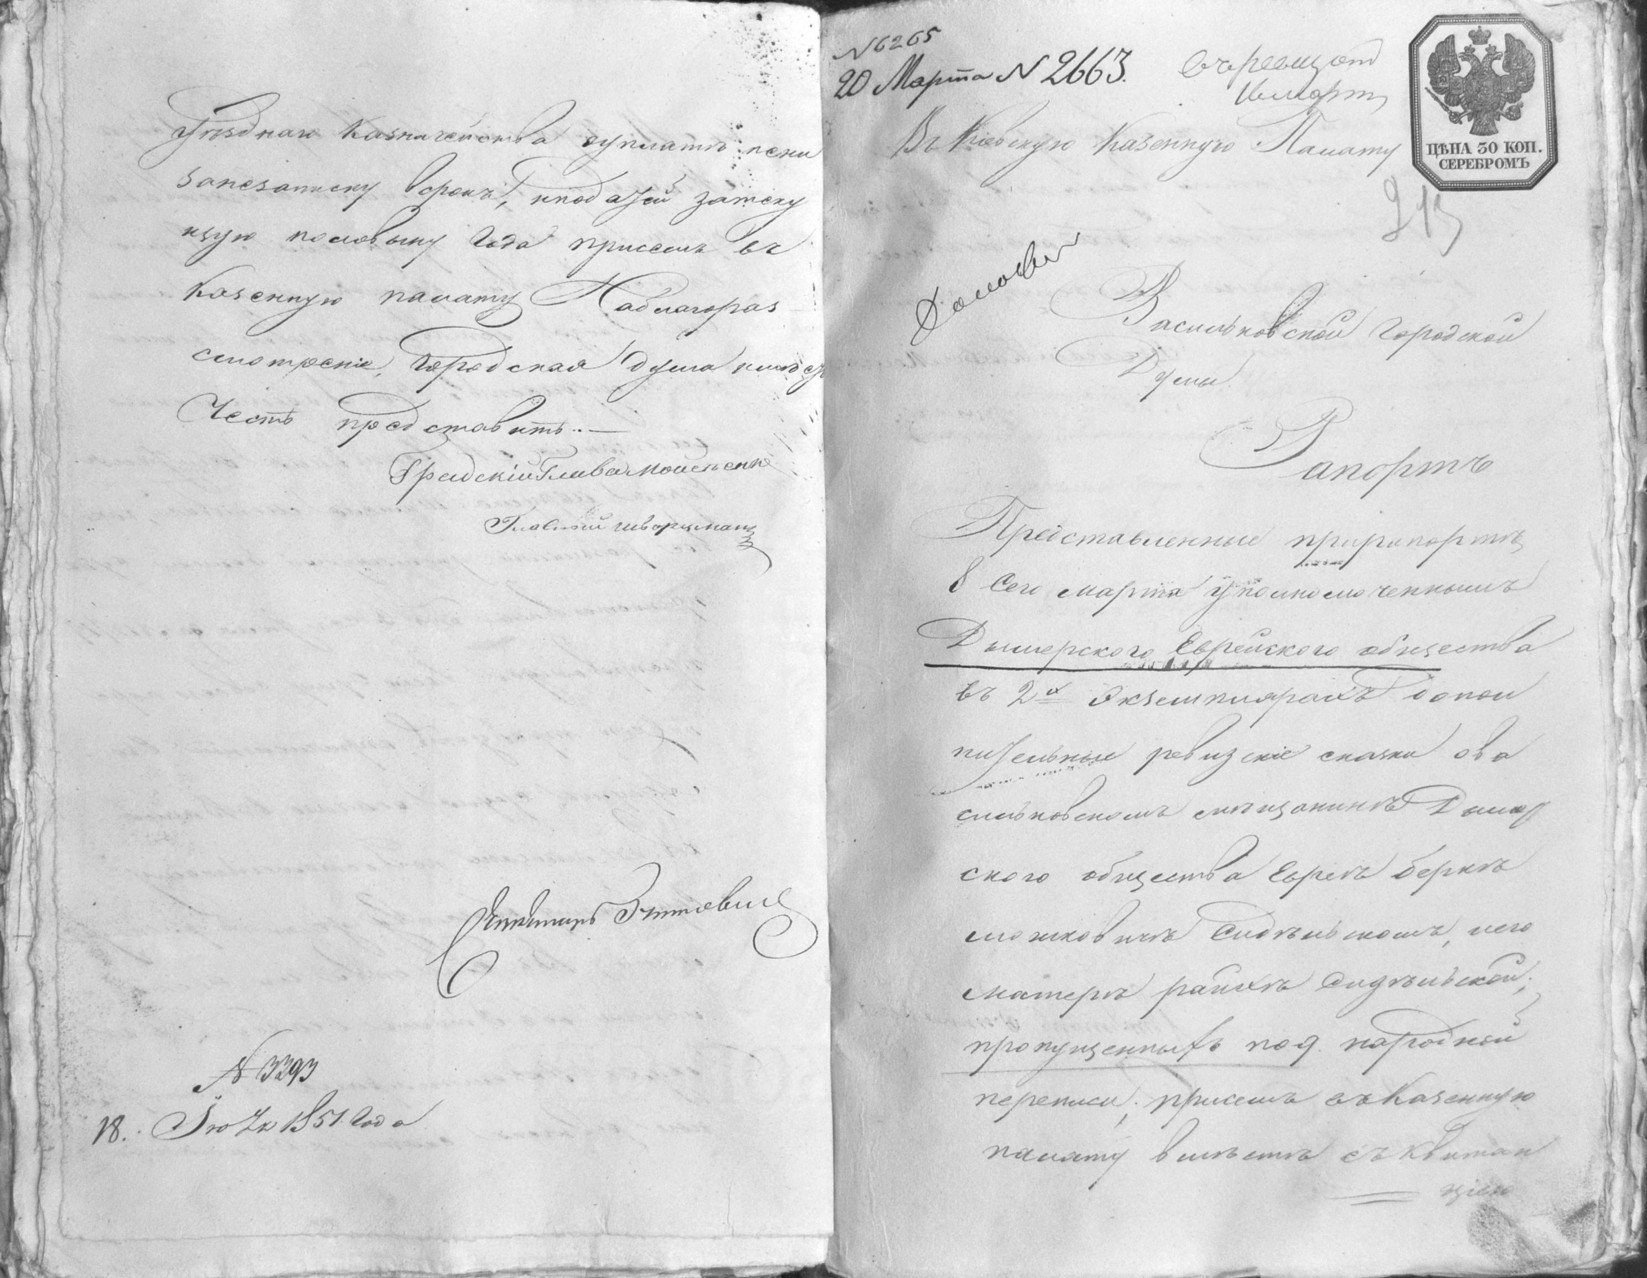 Уѣзднаго Казначейства оуплатѣ пени
въ срокъ, и податей затеку
щую половину Года присемъ въ
Казенную палату Наблагораз
смотреніе, Городская Дума имѣетъ
Честь представить.—
Градскій Глава Мойсѣенко
Гласный Шварцман
Секретарь
N 3293
18. Іюля 1851 Года
N 6265
20 Марта N 2663.
ЦѢНА 30 КОП.
СЕРЕБРОМЪ
Въ Кіевскую Казенную Палату
213
Васильковской Городской
Думы
Рапортъ
Представленные прирапортѣ
8 Сего марта уполномоченнымъ
Дымерского Еврейского общества
въ 2х Экземплярахъ допол
нительные ревизскіе сказки ова
сильковскомъ мѣщанинѣ Дымер
ского общества Евреѣ беркѣ
мошковичѣ Сидѣльскомъ, иего
матерѣ райзѣ Сидѣльской;
пропущенныхъ по 9. народной
переписи, присемъ въ Казенную
палату вместѣ съ Квитан
цiею